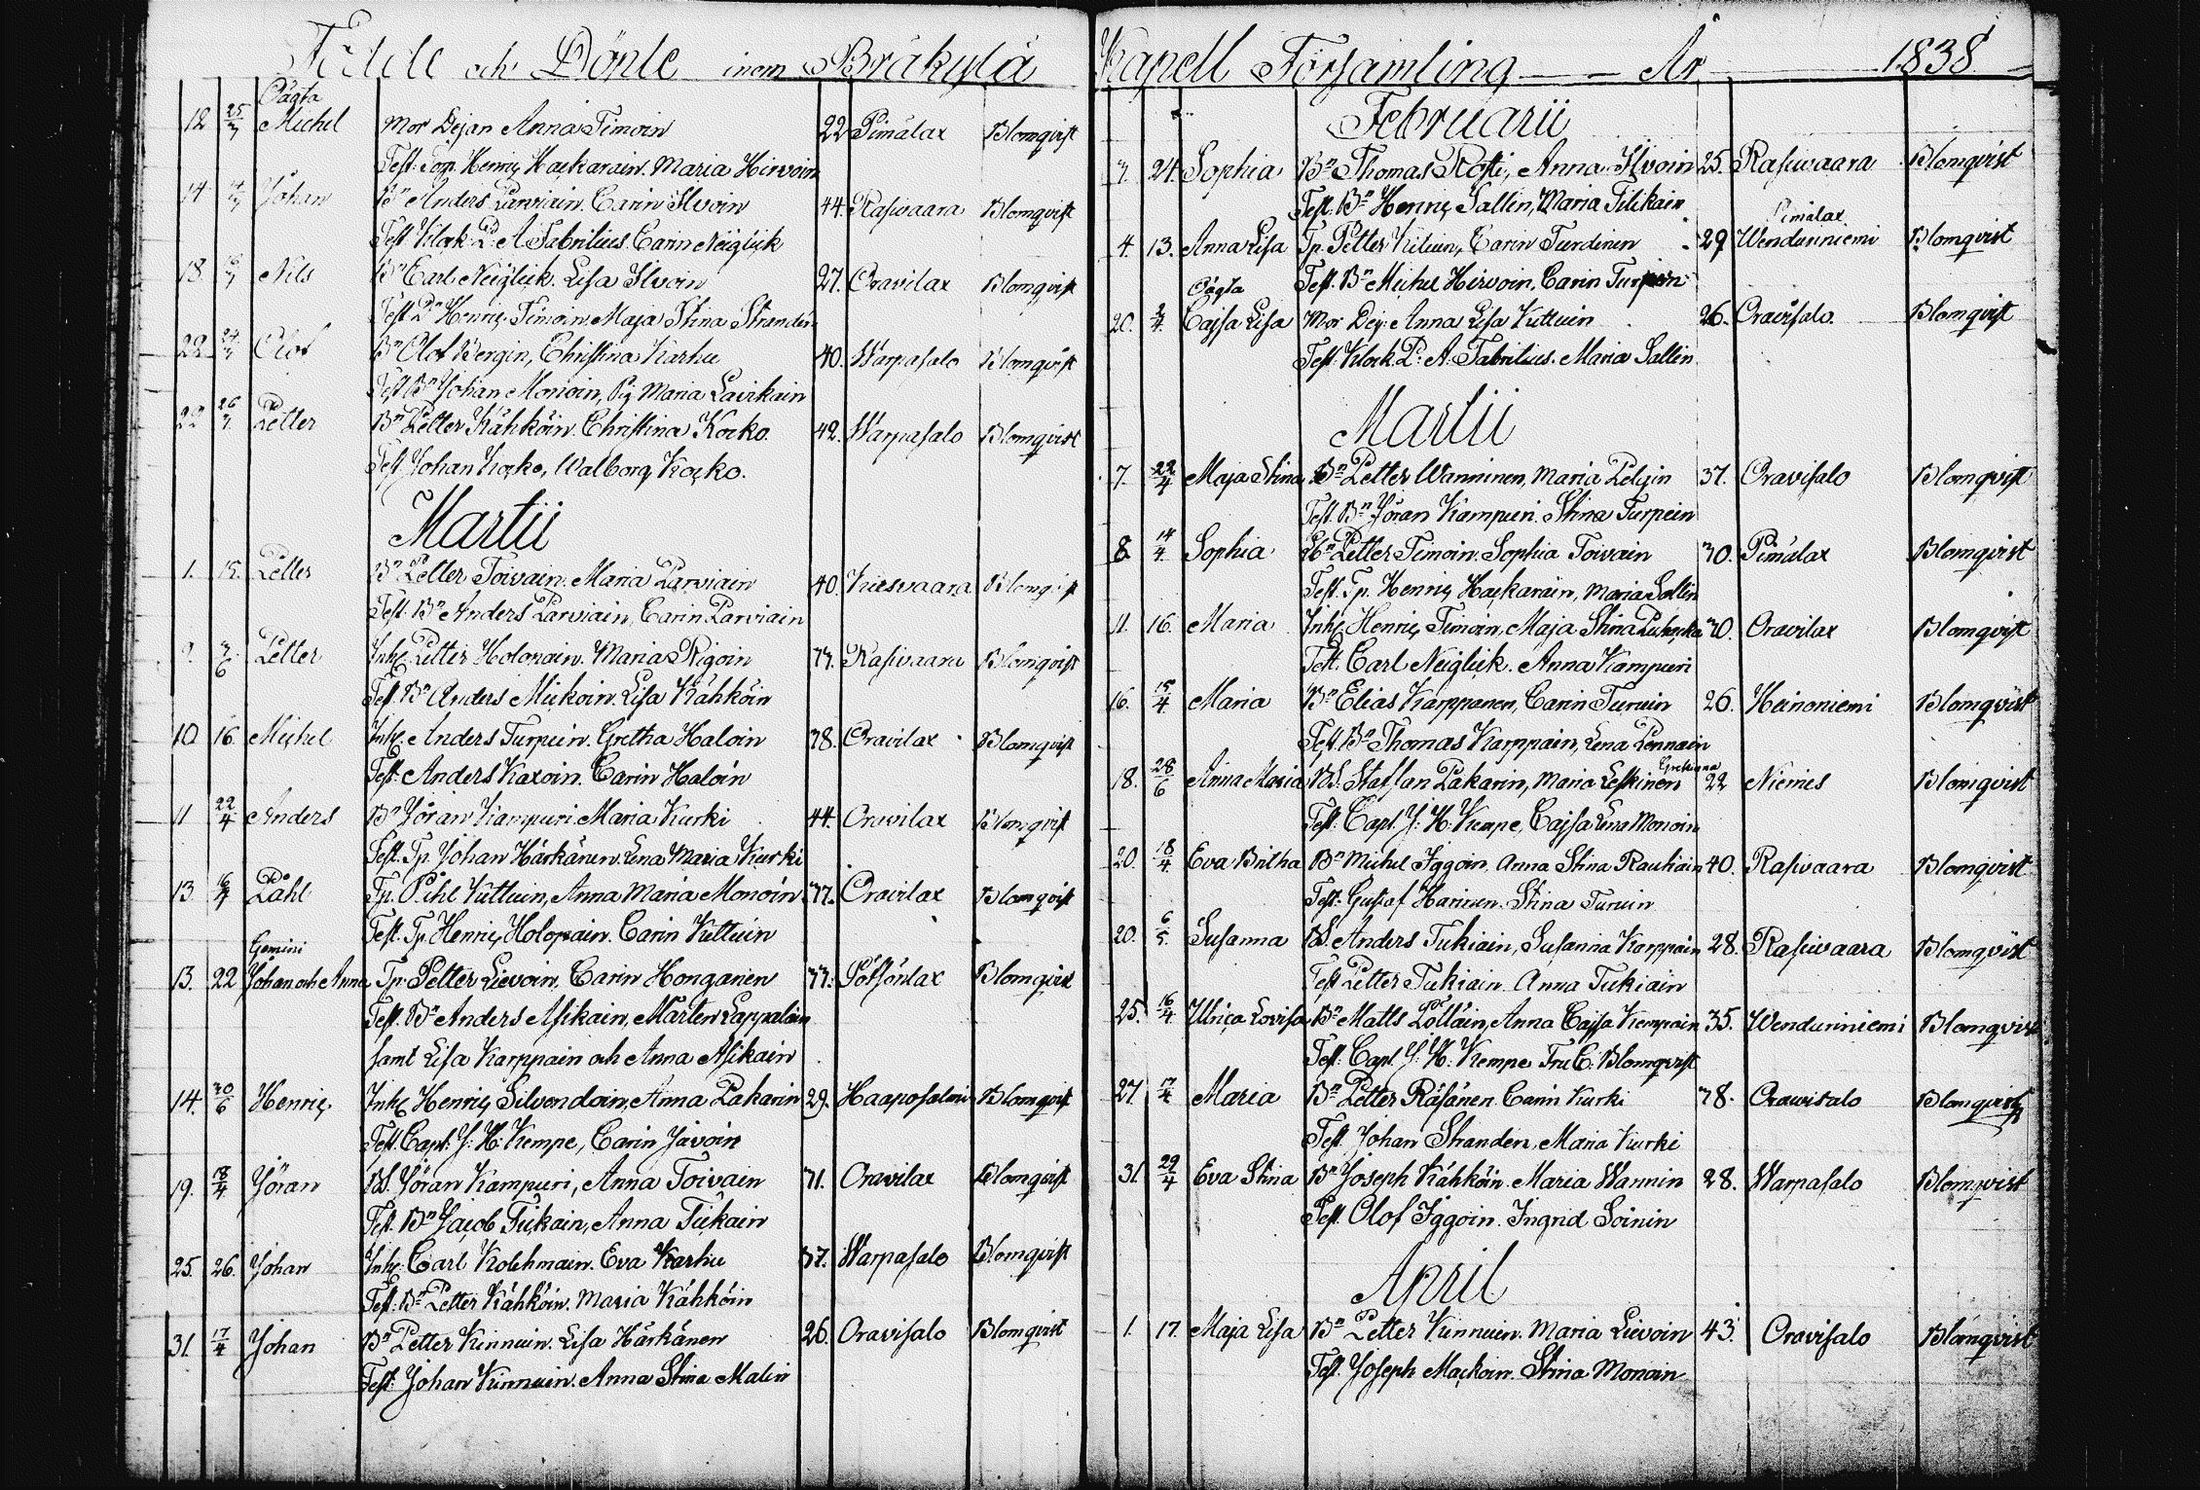 Födde och Döpte inom Bräkylä Kapell Församling År 1838
Oägta
12 25/3 Michel Mor Dejan Anna Timoin 22 Pimälax Blomqvist
Test. Torp. Henric Hackarain. Maria Hirvoin
14 Johan Bn Anders Parviain. Carin Ilvoin 44. Rasivaara Blomqvist
Test Klock. P: A Fabrilius. Carin Neiglick
18. Nils Bn Carl Neiglick. Lisa Ilvoin 27. Oravilax Blomqvist
Test Henric Timoin. Maja Stina Strandén
22 Olof Bn Olof Bergin, Christina Karhu 40. Warpasalo Blomqvist
Test Bn Johan Monoin, Pig Maria Lairikain
22 26/3 Petter Bn Petter Kähköin. Christina Kocko. 42. Warpasalo Blomqvist
Test Johan Kocko, Walborg Kocko.
Martii
1. 15. Petter Bn Petter Toivain. Maria Parviain 40. Kiesvaara Blomqvist
Test. Bn Anders Parviain, Carin Parviain
Petter Inh. Petter Holonain. Maria Rigoin 33. Rasivaara Blomqvist
Test Bn Anders Mickoin. Lisa Kähköin
10 16. Michel Inh. Anders Turpein. Gretha Haloin 38. Oravilax Blomqvist
Test: Anders Kaxoin. Carin Haloin
11 22/4 Anders Bn Jöran Kampuri. Maria Kurki 44. Oravilax Blomqvist
Test. Tp. Johan Härkänen. Lena Maria Kurki
13 16/4 Påhl Tp. Påhl Kuttuin, Anna Maria Monoin 37. Oravilax Blomqvist
Test. Tp. Henric Holopain. Carin Kuttuin
Gemini
13. 22 Johan och Anna Tp. Petter Lievoin. Carin Honganen 33. Blomqvist
Test. Bn Anders Asikain, Mårten Lappalain
samt Lisa Karppain och Anna Asikain
14. 30/6 Henric Inh. Henric Silvendoin, Anna Pakarin 29. Haaposalmi Blomqvist
Test Capt. J: H: Kempe, Carin Jävoin
19. 18/4 Jöran BS. Jöran Kampuri, Anna Toivain 31. Oravilax Blomqvist
Test. Bn Jacob Tickain, Anna Tickain
25. 26. Johan Inh. Carl Kolehmain. Eva Karhu 37. Warpasalo Blomqvist
Test. Bn Petter Kähköin. Maria Kähköin
31. 17/4 Johan Bn Petter Kinnuin. Lisa Härkänen 26. Oravisalo Blomqvist
Test: Johan Kinnuin. Anna Stina Malin
Februarii
3. 24. Sophia Bn Thomas Rosti, Anna Ilvoin 25. Rasivaara Blomqvist
Test. Bn Henric Sallin, Maria Tilikain
Pimälax
4. 13. Anna Lisa Tp. Petter Kiluin, Carin Turdinen 29 Wenduriniemi Blomqvist
Test. Bn Michel Hirvoin, Carin Turpein
Oägta
20. 2/4 Cajsa Lisa Mor Dej: Anna Lisa Kuttuin 26. Oravisalo. Blomqvist
Test. Klock. P: A. Fabrilius. Maria Sallin
Martii
7. 22/4 Maja Stina Bn Petter Wanninen, Maria Pelgin 37. Oravisalo Blomqvist
Test. Bn Jöran Kampuri. Stina Turpein
8 14/4 Sophia Bn Petter Timoin. Sophia Toivain 30. Pimälax Blomqvist
Test. Tp. Henric Hackarain, Maria Sallin
11. 16. Maria Inh. Henric Timoin, Maja Stina 30. Oravilax Blomqvist
Test. Carl Neiglick. Anna Kampuri
16. 15/4 Maria Bn Elias Karppanen, Carin Turuin 26. Hernoniemi Blomqvist
Test. Bn Thomas Karppain, Lena Pennain
18. 28/6 Anna Maria BS. Staffan Pakarin, Maria Leskinen 22 Niemes Blomqvist
Test: Capt. J: H: Kempe, Cajsa Lena Monoin
20. 18/4 Eva Britha Bn Michel Iggoin, Anna Stina Rauhiain 40. Rasivaara Blomqvist
Test. Gustaf Harinen. Stina Turuin
20. 6/5. Susanna BS. Anders Tukiain, Susanna Karppain 28. Rasivaara Blomqvist
Test Petter Tukiain. Anna Tukiain
25. 16/4 Ulrica Lovisa Bn Matts Pöllläin, Anna Cajsa Kempain 35. Wenduriniemi Blomqvist
Test: Capt. J: H: Kempe Fru C: Blomqvist
27 17/4 Maria Bn Petter Räsänen. Carin Kurki 38. Orawisalo Blomqvist
Test. Johan Stranden, Maria Kurki
31 29/4 Eva Stina Bn Joseph Kähköin. Maria Wannin 28. Warpasalo Blomqvist
Test. Olof Iggoin. Ingrid Soinin
April
1. 17. Maja Lisa Bn Petter Kinnuin. Maria Lievoin 43. Oravisalo Blomqvist
Test. Joseph Mackoin. Stina Monoin